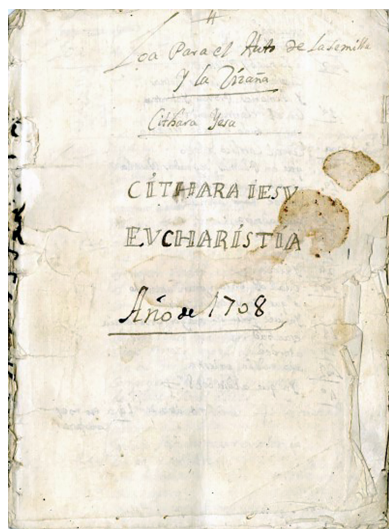 Loa Para el Auto de La Semilla
Y la Zizaña
Cithara Yesu
CITHARA IESV
EVCHARISTIA
Año de 1708